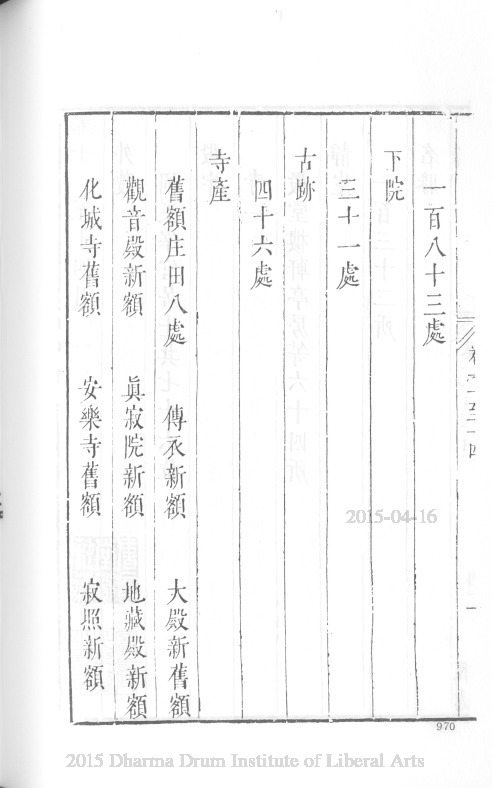 一百八十三處
下院
三十一處
古跡
四十六處
寺產
舊額庄田八處 傳衣新額 大殿新舊額
觀音殿新額 眞寂院新額 地藏殿新額
化城寺舊額 安樂寺舊額 寂照新額
2015-04-16
970
2015 Dharma Drum Institute of Liberal Arts